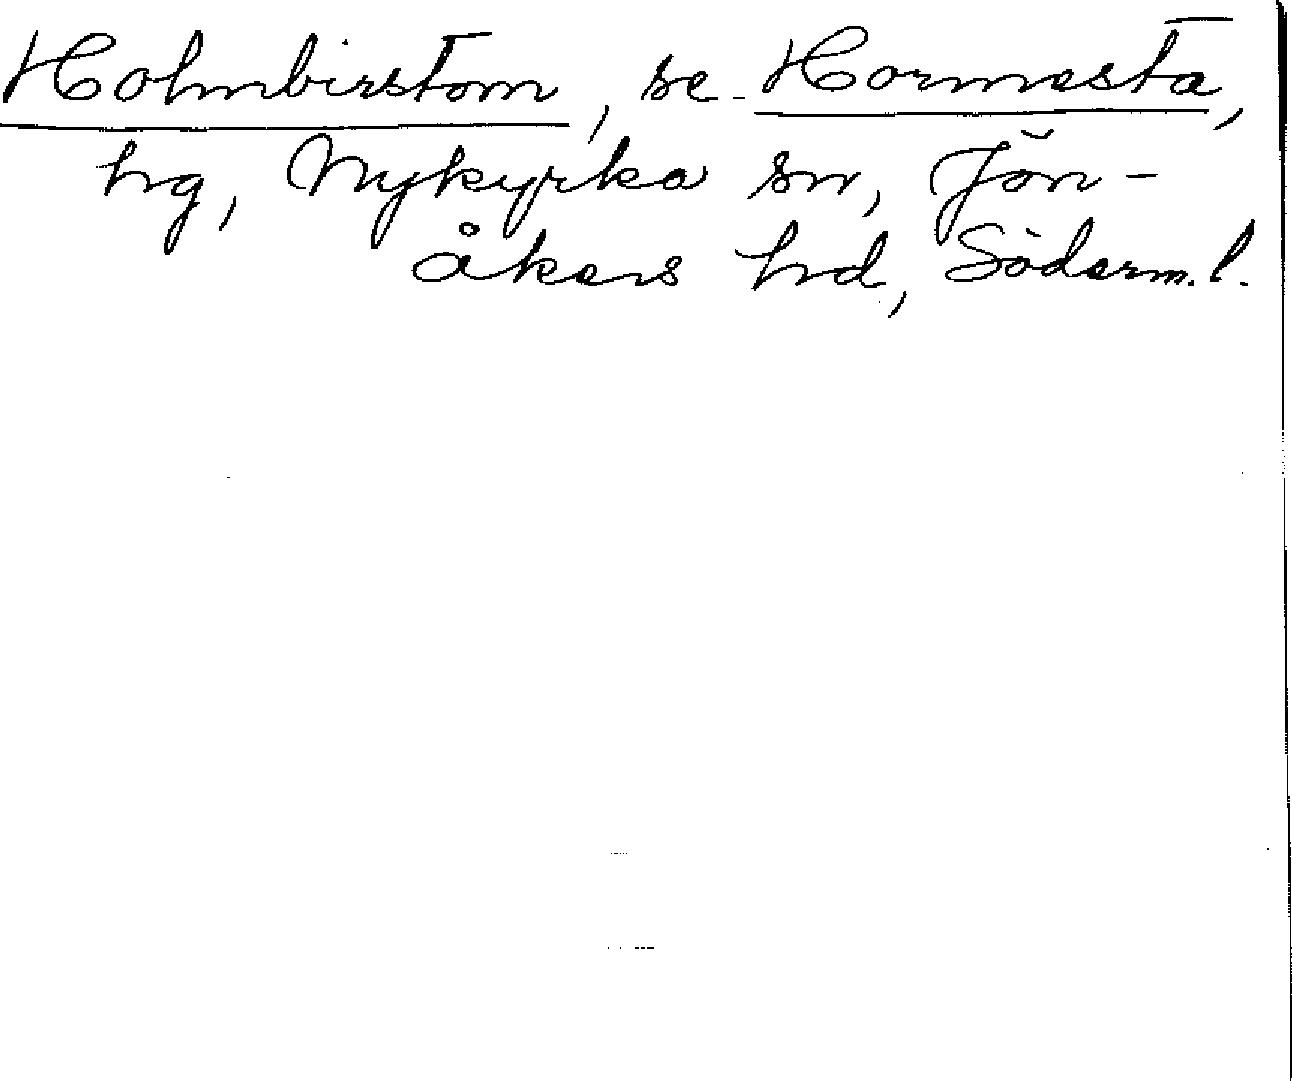 Holmbirstom, se Hormesta,
hg, Nykyrka sn, Jön-
åkers hd, Söderm.l.